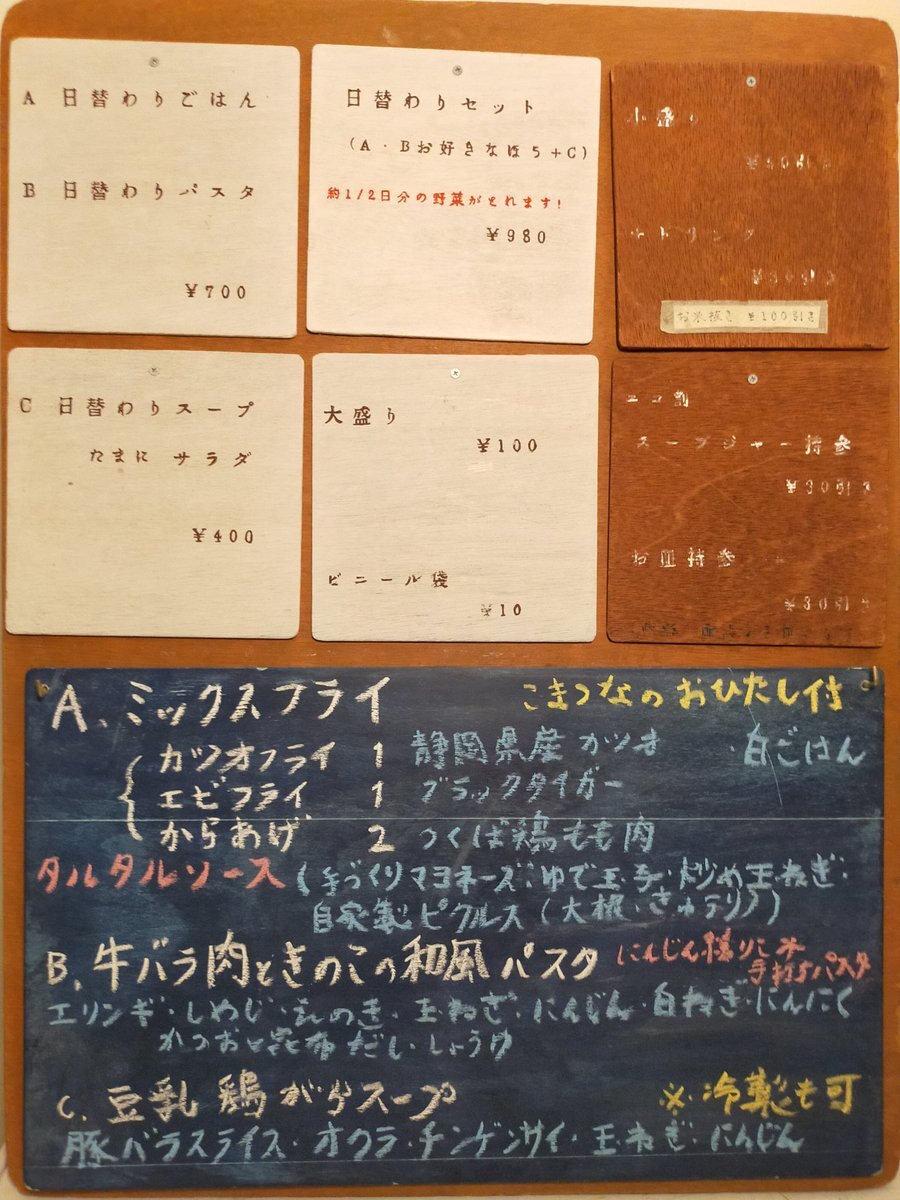 A 日替わりごはん
B 日替わりパスタ
¥700
日替わりセット
(A・Bお好きなほう+C)
約1/2日分の野菜がとれます!
¥980
小盛り
¥50引き
お米抜き ¥100引き
C 日替わりスープ
たまに サラダ
¥400
大盛り
¥100
ビニール袋
¥10
エコ割
スープジャー持参
¥30引き
お皿持参
¥30引き
A. ミックスフライ こまつなのおひたし付
カツオフライ 1 静岡県産カツオ ・白ごはん
エビフライ 1 ブラックタイガー
からあげ 2 つくば鶏もも肉
タルタルソース (手づくりマヨネーズ・ゆで玉子・炒め玉ねぎ・
自家製ピクルス(大根・さやテリア)
B. 牛バラ肉ときのこの和風パスタ にんじん練りこみ
手打ちパスタ
エリンギ・しめじ・えのき・玉ねぎ・にんじん・白ねぎ・にんにく
かつおと昆布だし・しょうゆ
C. 豆乳 鶏がらスープ ※冷製も可
豚バラスライス・オクラ・チンゲンサイ・玉ねぎ・にんじん